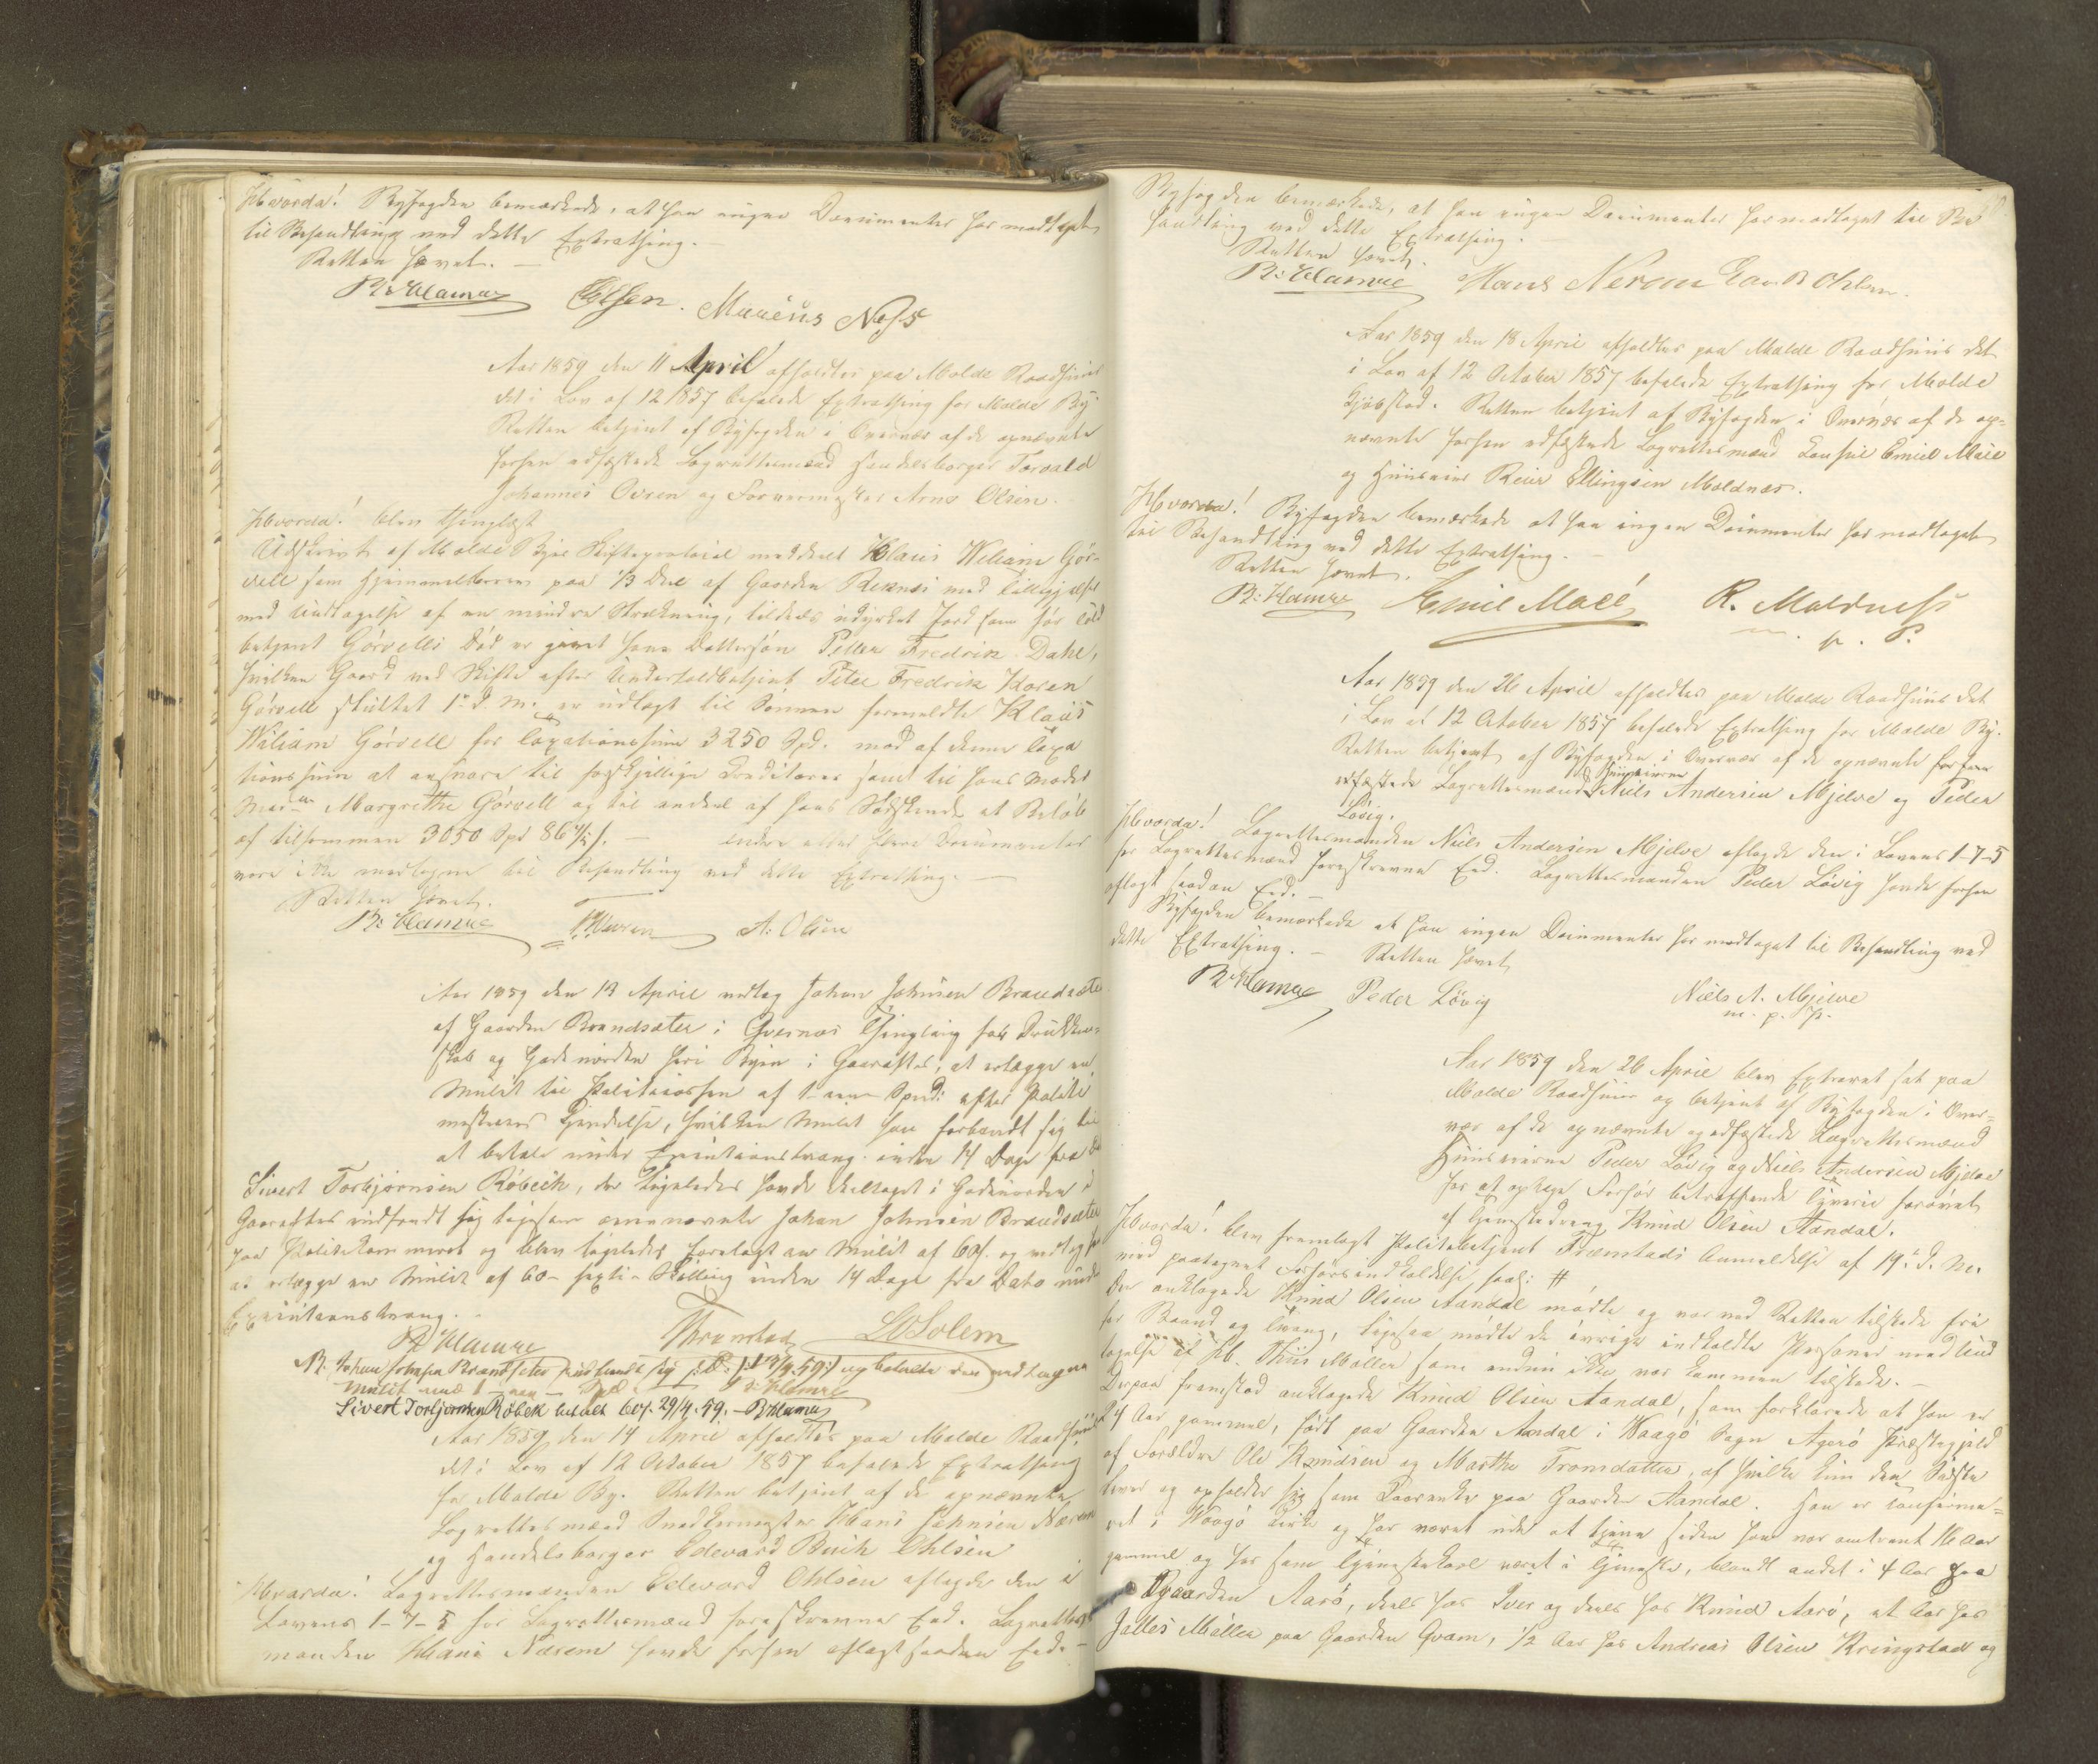 Hvorda! Byfogden bemærkede, at han ingen Documenter har modtaget
til Behandling ved dette Extrathing. -
Retten hævet. -
B: Hamre Olsen. Mauëus Ness
Aar 1859 den 11 April afholdtes paa Molde Raadhuus
det i Lov af 12 1857 befalede Extrathing for Molde By
Retten betjent af Byfogden i Overvær af de opnævnte
forhen edfæstede Lagrettesmænd Handelsborger Torvald
Johannes Owren og Farvermester Arne Olsen.
Hvorda! blev thinglæst
Udskrivt af Molde Byes Skifteprotocol meddeelt Klaus Wiliam Gör-
vell som Hjemmelbrev paa 1/3 Deel af Gaarden Reknæs med Tilliggelse
med Undtagelse af en mindre Strækning, tildeels udyrket Jord som før Told
betjent Görvells Död er givet hans Dattersön Petter Fredrik Dahl,
hvilken Gaard ved Skifte efter Undertoldbetjent Peter Fredrik Koren
Görvell sluttet 1ste d. M. er udlagt til Sønnen formeldte Klaus
Wiliam Görvell for Taxationssum 3250 Spd. mod af denne Taxa
tionssum at ansvare til forskjellige Creditorer samt til hans Moder
Margrethe Görvell og til endeel af hans Sødskende et Beløb
af tilsammen 3050 Spd 86 ß. - andre eller flere Documenter
vare ikke modtagne til Behandling ved dette Extrathing. -
Retten hævet.
B: Hamre THowren A: Olsen
Aar 1859 den 13 April vedtog Johan Johnsen Brandsæter
af Gaarden Brandsæter i Qvernæs Thinglaug for Drukken-
skab og Gadeuorden heri Byen i Gaaraftes, at erlægge en
Mulct til Politikassen af 1- een - Spd: efter Politi
mesterens Kjendelse, hvilken Mulct han forbandt sig til
at betale under Executionstvang inden 14 Dage fra Dato
Sivert Torbjørnsen Röbeck, der ligeledes havde deeltaget i Gadeuorden i
Gaaraftes indfandt sig ligesom ovennævnte Johan Johnsen Brandsæter
paa Politikammeret og blev ligeledes forelagt en Mulct af 60ß. og vedtog han
at erlægge en Mulct af 60- sexti- Skilling inden 14 Dage fra Dato under
Executionstvang. -
B Hamre Thronstad LOSolem
NB. Johan Johnsen Brandsæter indfandt sig s: D: (: 13/4. 59 :) og betalte den vedtagne
Mulct med 1 - een - Spd B: Hamre
Sivert Torbjørnsen Röbek betalt 60ß. 29/4. 59. - B Hamre
Aar 1859 den 14 April afholdtes paa Molde Raadhuus
det i Lov af 12 October 1857 befalede Extrathing
for Molde By. Retten betjent af de opnævnte
Lagrettesmænd Snedkermester Hans Johnsen Næren
og Handelsborger Edevard Buch Ohlsen
Hvorda! Lagrettesmanden Edevard Ohlsen aflagde den i
Lovens 1-7-5 for Lagrettesmænd foreskrevne Eed. Lagrettes
manden Hans Næren havde forhen aflagt saadan Eed. -
Byfogden bemærkede, at han ingen Documenter har modtaget til Be
handling ved dette Extrathing. -
Retten hævet.
B: Hamre Hans Neraan Edv. B Ohlsen.
Aar 1859 den 18 April afholdtes paa Molde Raadhuus det
i Lov af 12 October 1857 befalede Extrathing for Molde
Kjøbstad. Retten betjent af Byfogden i Overvær af de op-
nævnte forhen edfæstede Lagrettesmænd Consul Emiel Mace
og Huuseier Reier Ellingsen Moldnæs.
Hvorda! Byfogden bemærkede at han ingen Documenter har modtaget
til Behandling ved dette Extrathing. -
Retten hævet.
B: Hamre Emiel Macé R. Moldness
m. p. P.
Aar 1859 den 26 April afholdtes paa Molde Raadhuus det
i Lov af 12 October 1857 befalede Extrathing for Molde By.
Retten betjent af Byfogden i Overvær af de opnævnte forhen
edfæstede Lagrettesmænd Huuseierne Niels Andersen Mjelve og Peder
Lövig.
Hvorda! Lagrettesmanden Niels Andersen Mjelve aflagde den i Lovens 1-7-5
for Lagrettesmænd foreskrevne Eed. Lagrettesmanden Peder Lövig havde forhen
aflagt saadan Eed. -
Byfogden bemærkede at han ingen Documenter har modtaget til Behandling ved
dette Extrathing. - Retten hævet
B Hamre Peder Lövig Niels A. Mjelve
m. p. P.
Aar 1859 den 26 April blev Extraret sat paa
Molde Raadhuus og betjent af Byfogden i Over-
vær af de opnævnte og edfæstede Lagrettesmænd
Huuseierne Peder Lövig og Niels Andersen Mjelve
for at optage Forhør betræffende Tyverie forøvet
af Tjenestedreng Knud Olsen Aandal.
Hvorda! blev fremlagt Politibetjent Fronstads Anmeldelse af 19de d. M.
med paategnet Forhørsindkaldelse, saal: #
Den anklagede Knud Olsen Aandal mødte og var ved Retten tilstede fri
for Baand og Tvang, ligesaa mødte de øvrige indkaldte Personer med Und
tagelse af Hb. Thiis Møller som endnu ikke var kommen tilstede. -
Derpaa fremstod anklagede Knud Olsen Aandal, som forklarede at han er
24 Aar gammel, født paa Gaarden Aandal i Waagö Sogn Agerö Præstegjeld
af Forældre Ole Knudsen og Marthe Tronsdatter, af hvilke kun den Sidste
lever og opholder sig som Kaarenke paa Gaarden Aandal. Han er confirme-
ret i Waagö Kirke og har været ude at tjene siden han var omtrent 16 Aar
gammel og har som Tjenestekarl været i Tjeneste, blandt andet i 4 Aar paa
Gaarden Aarö, deels hos Iver og deels hos Knud Aarö, et Aar hos
Jalles Møller paa Gaarden Qvam, 1/2 Aar hos Andreas Olsen Kringstad og